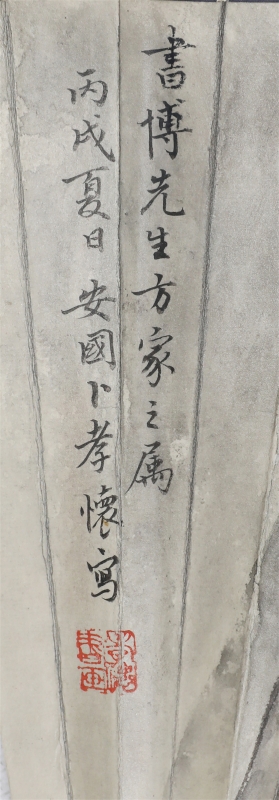 書博先生方家之属
丙戌夏日安國卜孝懷寫